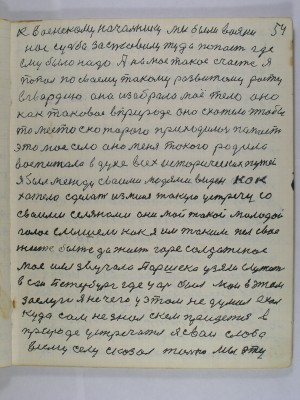 к военскому начальнику, мы были взяты 54
нас судьба заставила туда попасть где
ему было надо. Я на мое такое счастье, я
попал по своему такому развитому росту
в гвардию. она избрала моё тело оно
как таковое в природе оно скотело чтобы
то место с которого приходилось
это мое село оно меня такого родило
воспитало в духе всех исторических путей
я был между своими людями виден как
хотело сделать из мия такую встречу со
своими селянами они мой такой молодой
голос слышели как я им таким пел свое
горе солдатское
мое имя звучало Паршека узяли служить
в Сан Петербург где царь был моя в этом
заслуги я нечего у этом не думил а ехал
куда сам не знал с кем придется в
природе устречатся я свои слово
всему селу сказал только мы эту